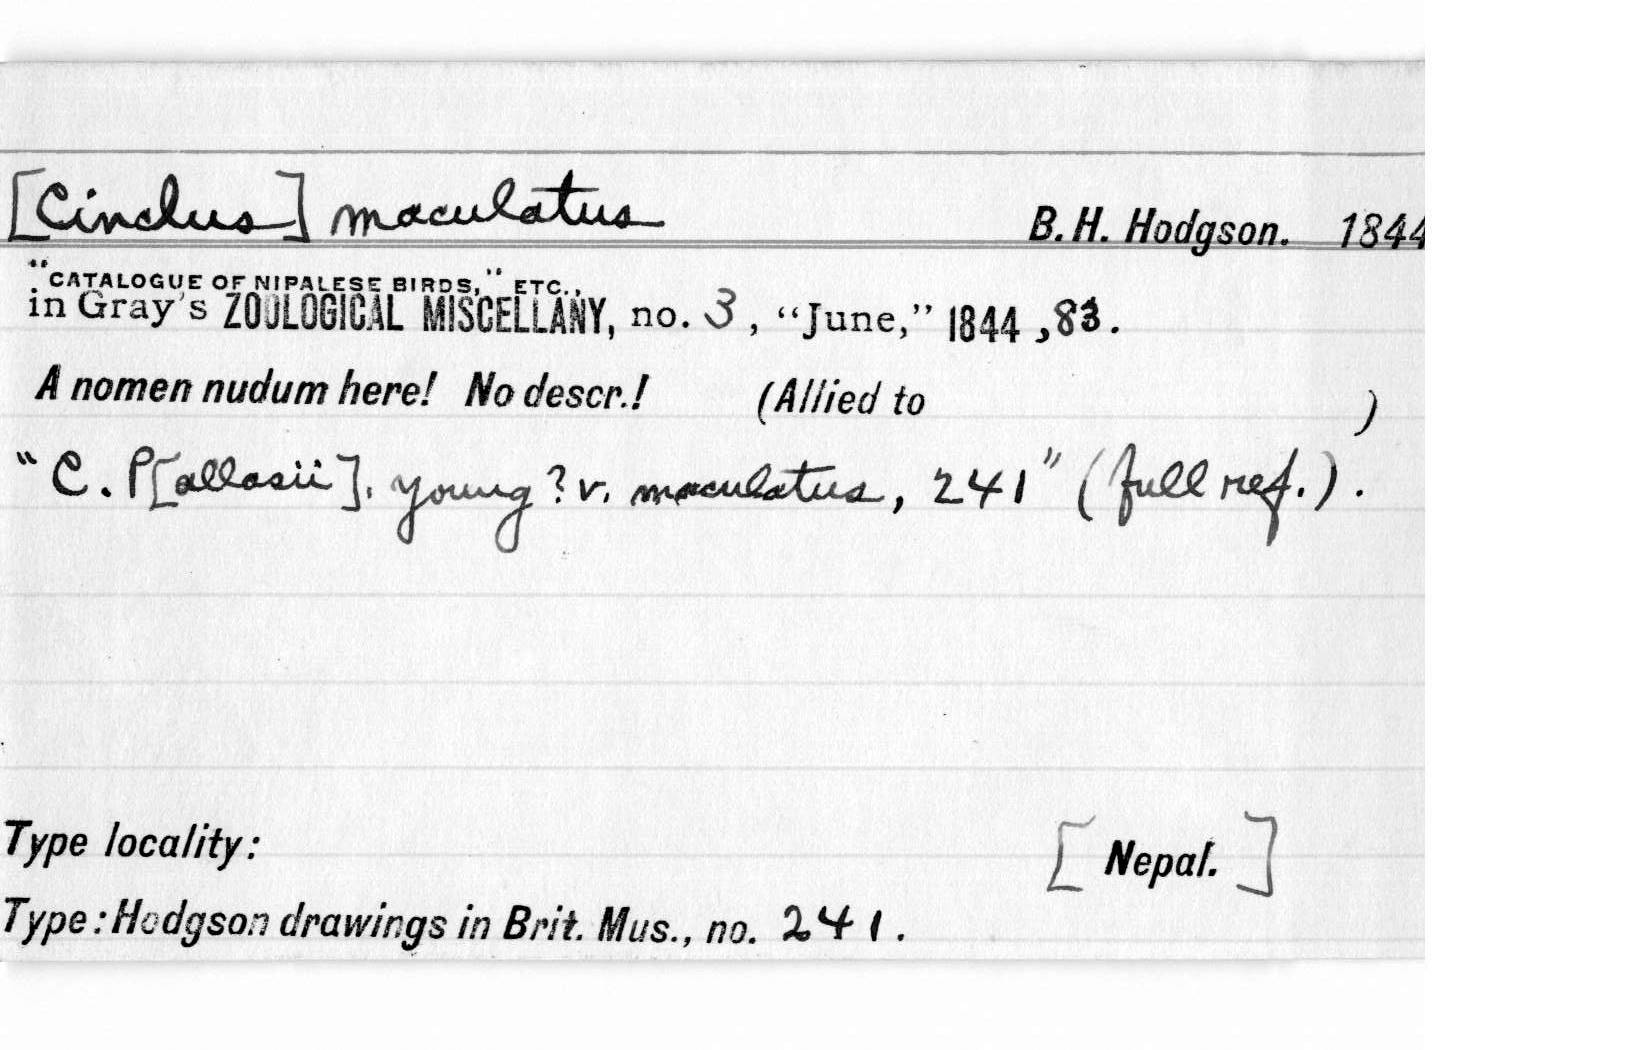 [Cinclus] maculatus B. H. Hodgson. 1844
"CATALOGUE OF NIPALESE BIRDS," ETC.,
in Gray's ZOOLOGICAL MISCELLANY, no. 3, "June," 1844, 83.
A nomen nudum here! No descr.! (Allied to )
"C. P[allasii]. young? v. maculatus, 241" (full ref.).
Type locality: [Nepal.]
Type: Hodgson drawings in Brit. Mus., no. 241.